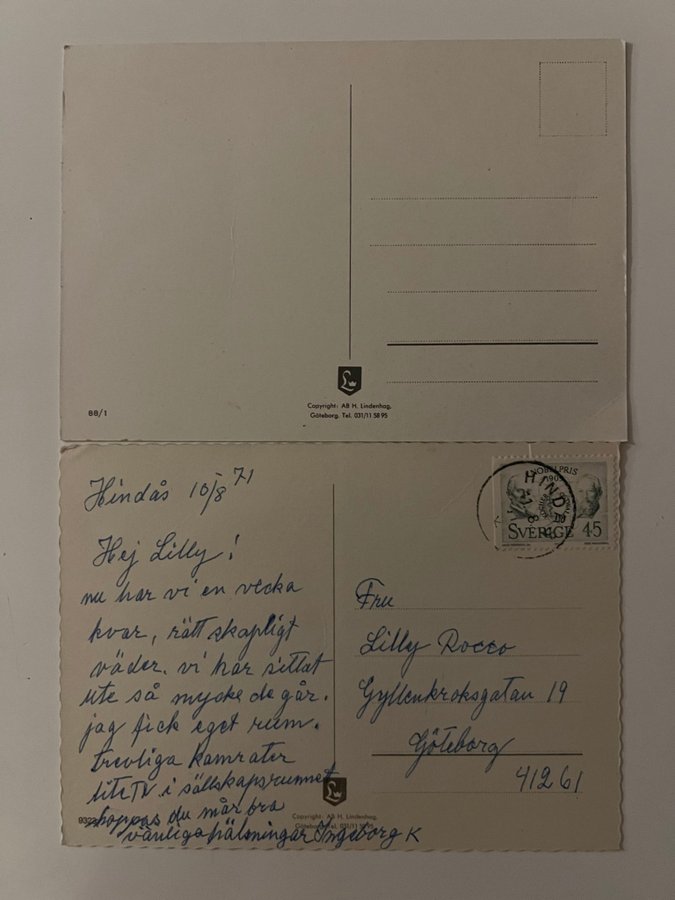 88/1
Copyright: AB H. Lindenhag,
Göteborg. Tel. 031/11 58 95
Hindås 10/8 71
Hej Lilly!
nu har vi en vecka
kvar, rätt skapligt
väder. vi har sittat
ute så mycke de går.
jag fick eget rum.
trevliga kamrater
lite TV i sällskapsrummet
hoppas du mår bra
vänliga hälsningar Ingeborg K
NOBELPRIS
HIND
SVERIGE 45
Fru
Lilly Rocco
Gyllenkroksgatan 19
Göteborg
41261
Copyright: AB H. Lindenhag,
Göteborg. Tel. 031/11 58 95